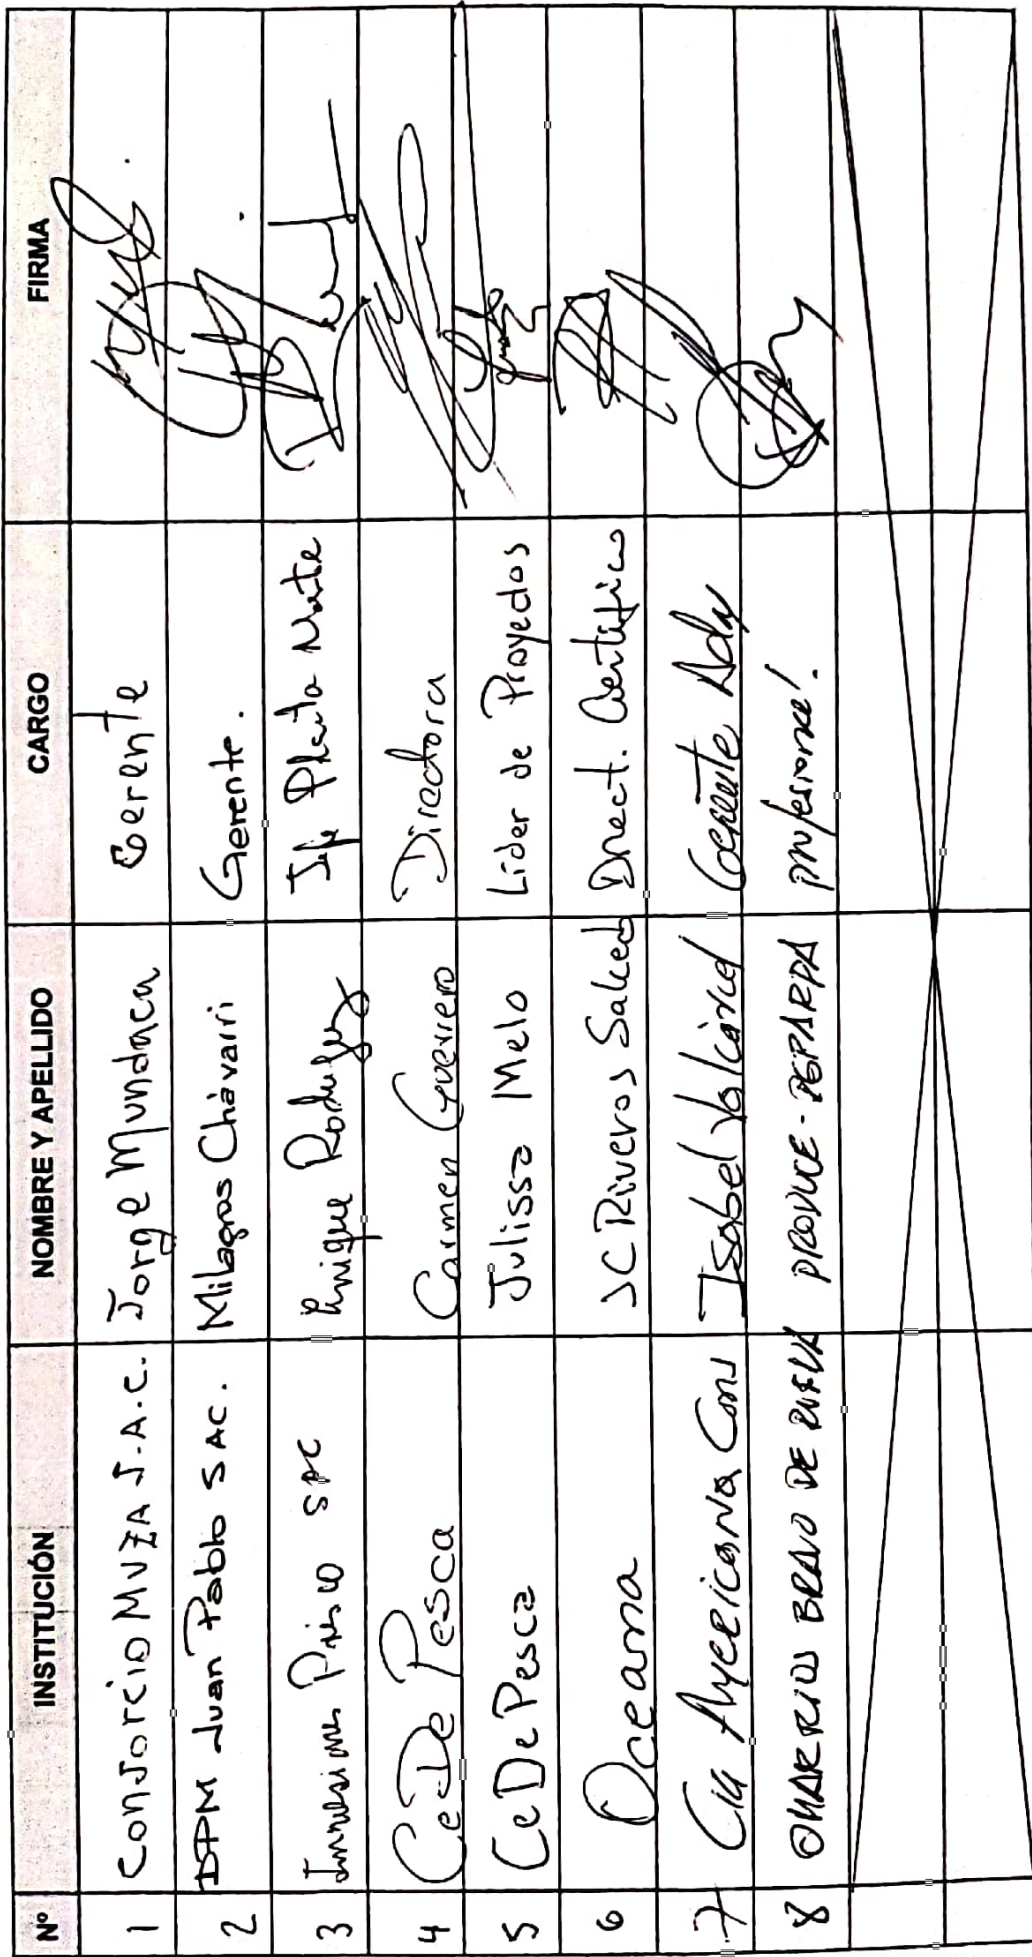 Nº INSTITUCIÓN NOMBRE Y APELLIDO CARGO FIRMA
1 Consorcio MUZA S.A.C. Jorge Mundaca Gerente
2 DPM Juan Pablo SAC. Milagros Chávarri Gerente.
3 Inversiones Prisco SAC Enrique Rodriguez Jefe Planta
4 CeDePesca Carmen Guerrero Directora
5 CeDePesca Julissa Melo Líder de Proyectos
6 Oceana JC Riveros Salcedo Direct. Científico
7 Cia Americana Cons Isabel Valcárcel Gerente Adm
8 OMAR RIOS BRAVO DE RUEDA PRODUCE - DGPARPA profesional.